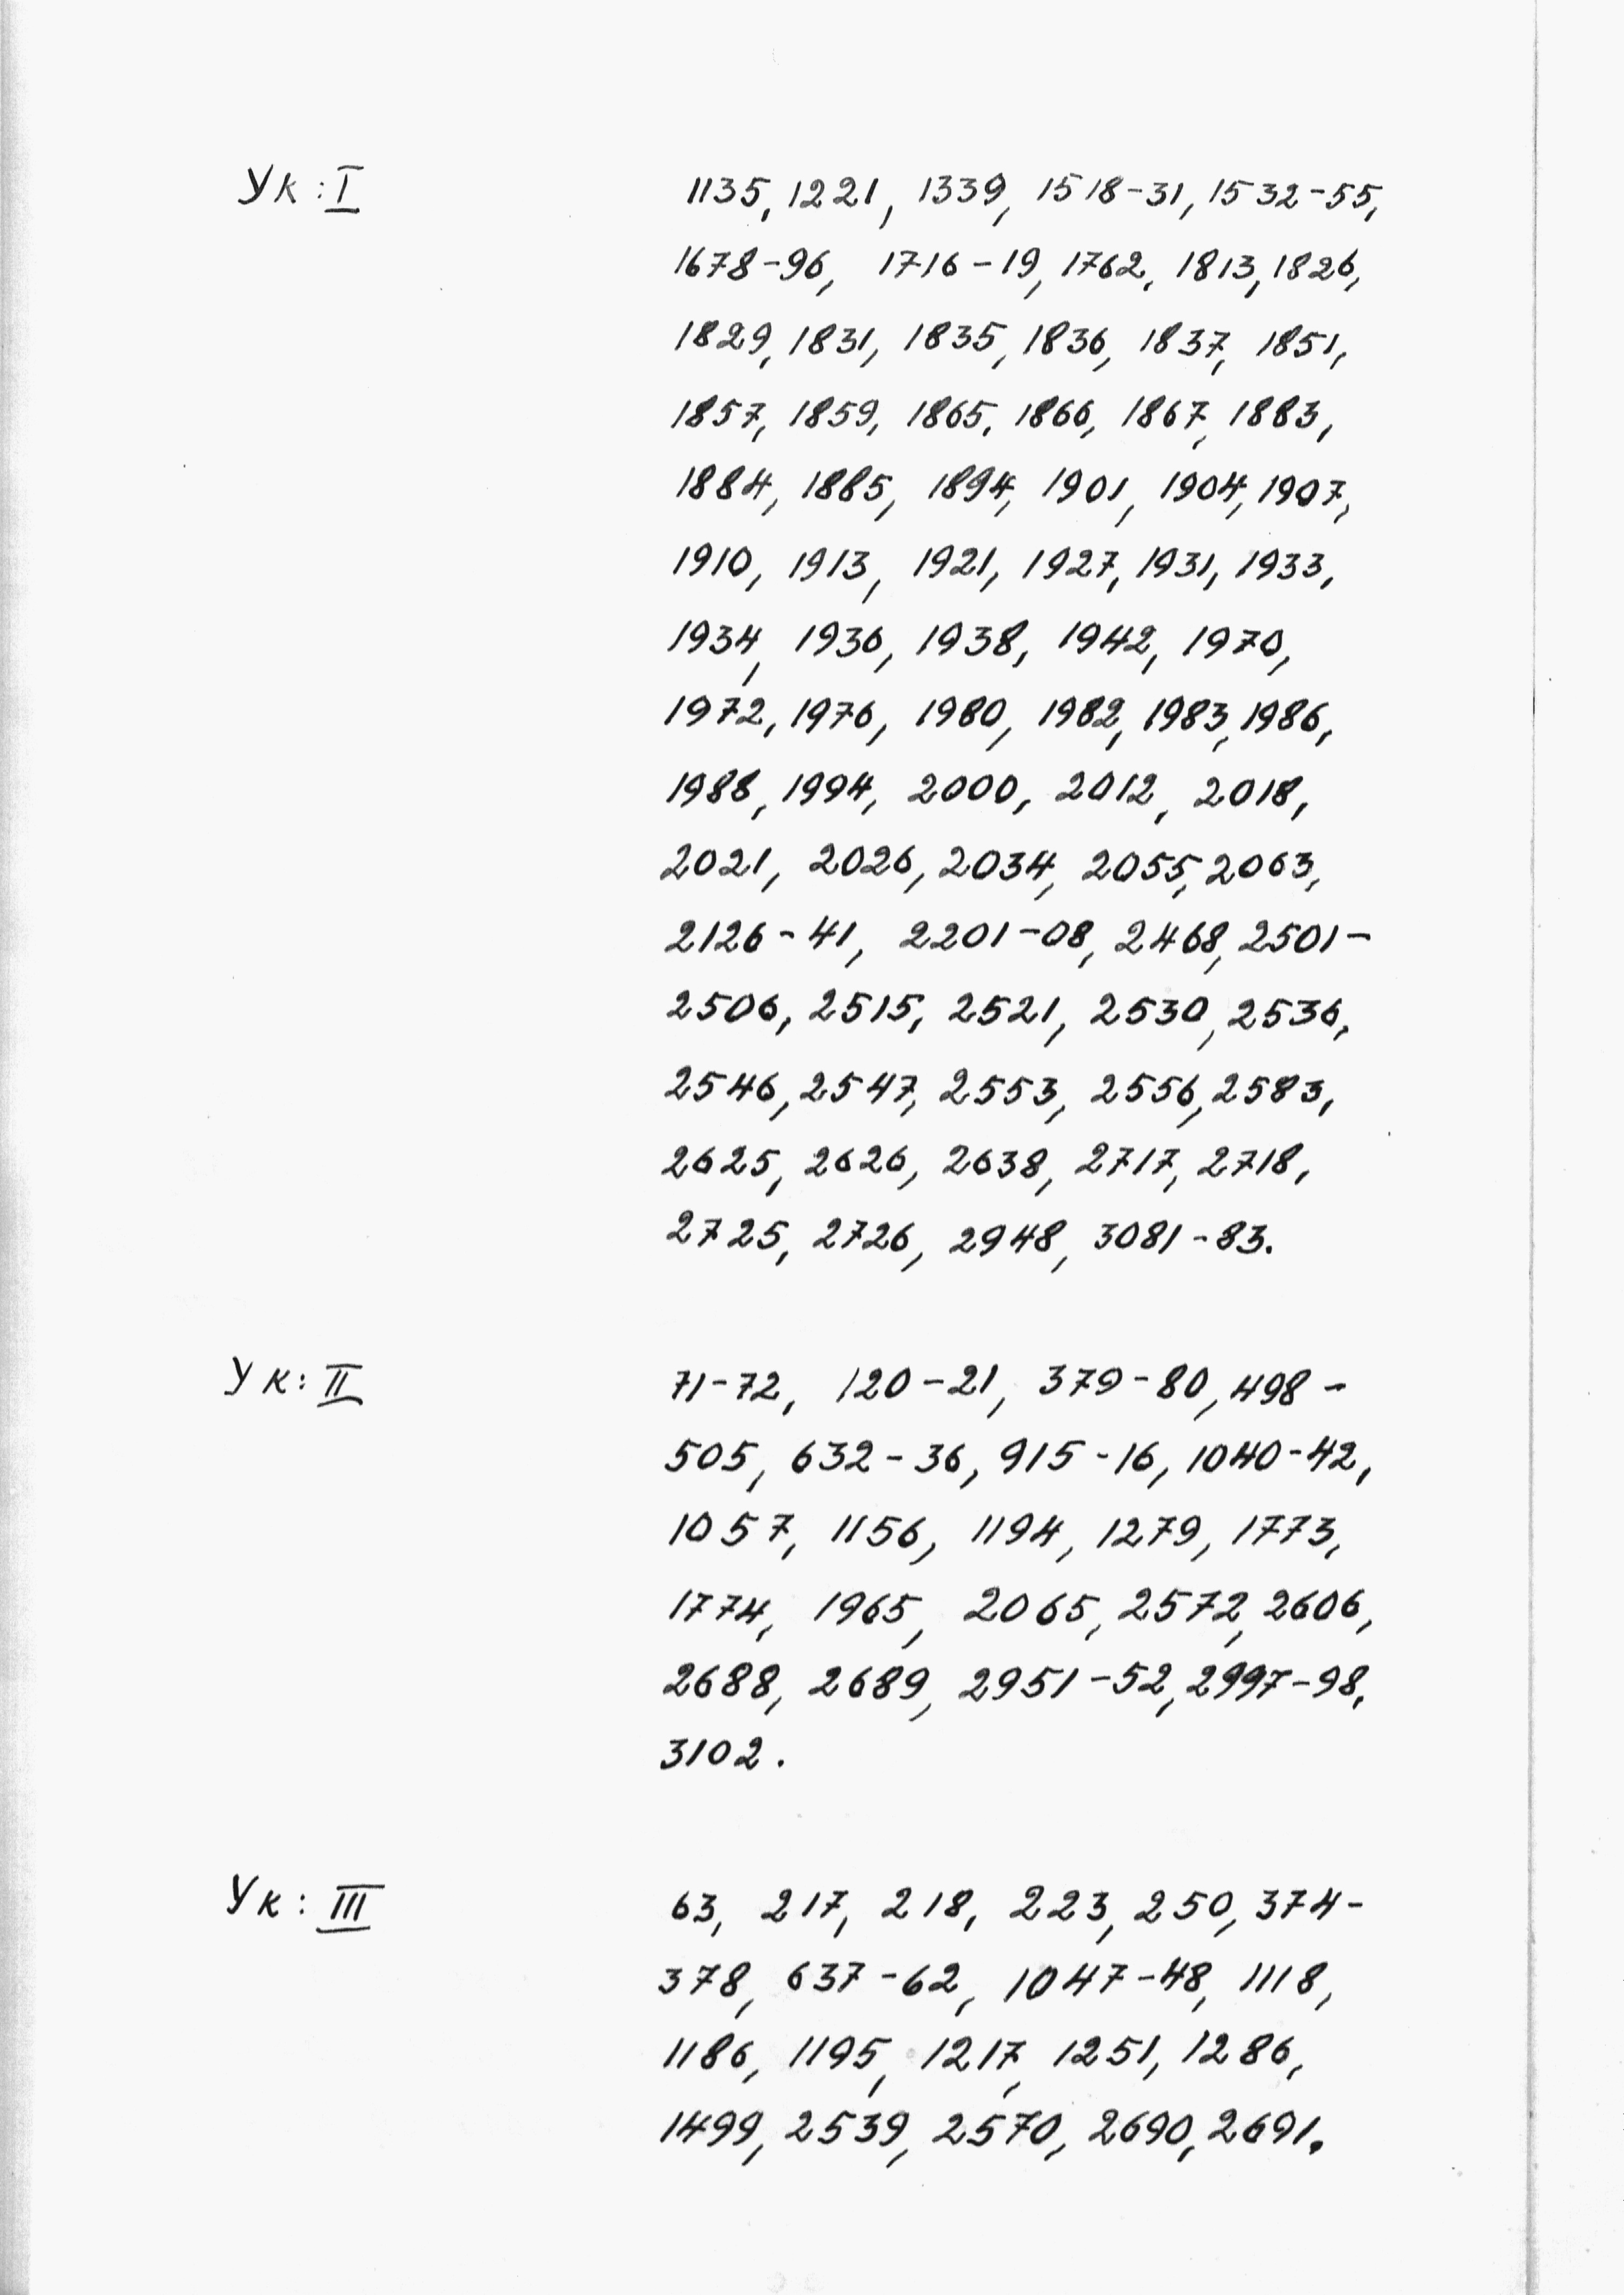 Ук: I 1135, 1221, 1339, 1518-31, 1532-55,
1678-96, 1716-19, 1762, 1813, 1826,
1829, 1831, 1835, 1836, 1837, 1851,
1857, 1859, 1865, 1866, 1867, 1883,
1884, 1885, 1894, 1901, 1904, 1907,
1910, 1913, 1921, 1927, 1931, 1933,
1934, 1936, 1938, 1942, 1970,
1972, 1976, 1980, 1982, 1983, 1986,
1988, 1994, 2000, 2012, 2018,
2021, 2026, 2034, 2055, 2063,
2126-41, 2201-08, 2468, 2501-
2506, 2515, 2521, 2530, 2536,
2546, 2547, 2553, 2556, 2583,
2625, 2626, 2638, 2717, 2718,
2725, 2726, 2948, 3081-83.
Ук: II 71-72, 120-21, 379-80, 498-
505, 632-36, 915-16, 1040-42,
1057, 1156, 1194, 1279, 1773,
1774, 1965, 2065, 2572, 2606,
2688, 2689, 2951-52, 2997-98,
3102.
Ук: III 63, 217, 218, 223, 250, 374-
378, 637-62, 1047-48, 1118,
1186, 1195, 1217, 1251, 1286,
1499, 2539, 2570, 2690, 2691.